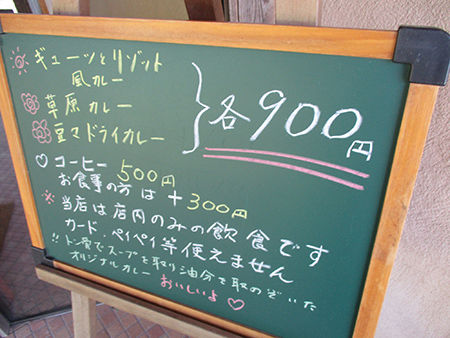 ギューッとリゾット
風カレー
草原カレー
豆々ドライカレー
各900円
♡コーヒー 500円
お食事の方は+300円
※当店は店内のみの飲食です
カード・ペイペイ等使えません
!!トン骨でスープを取り油分を取のぞいた
オリジナルカレー おいしいよ♡